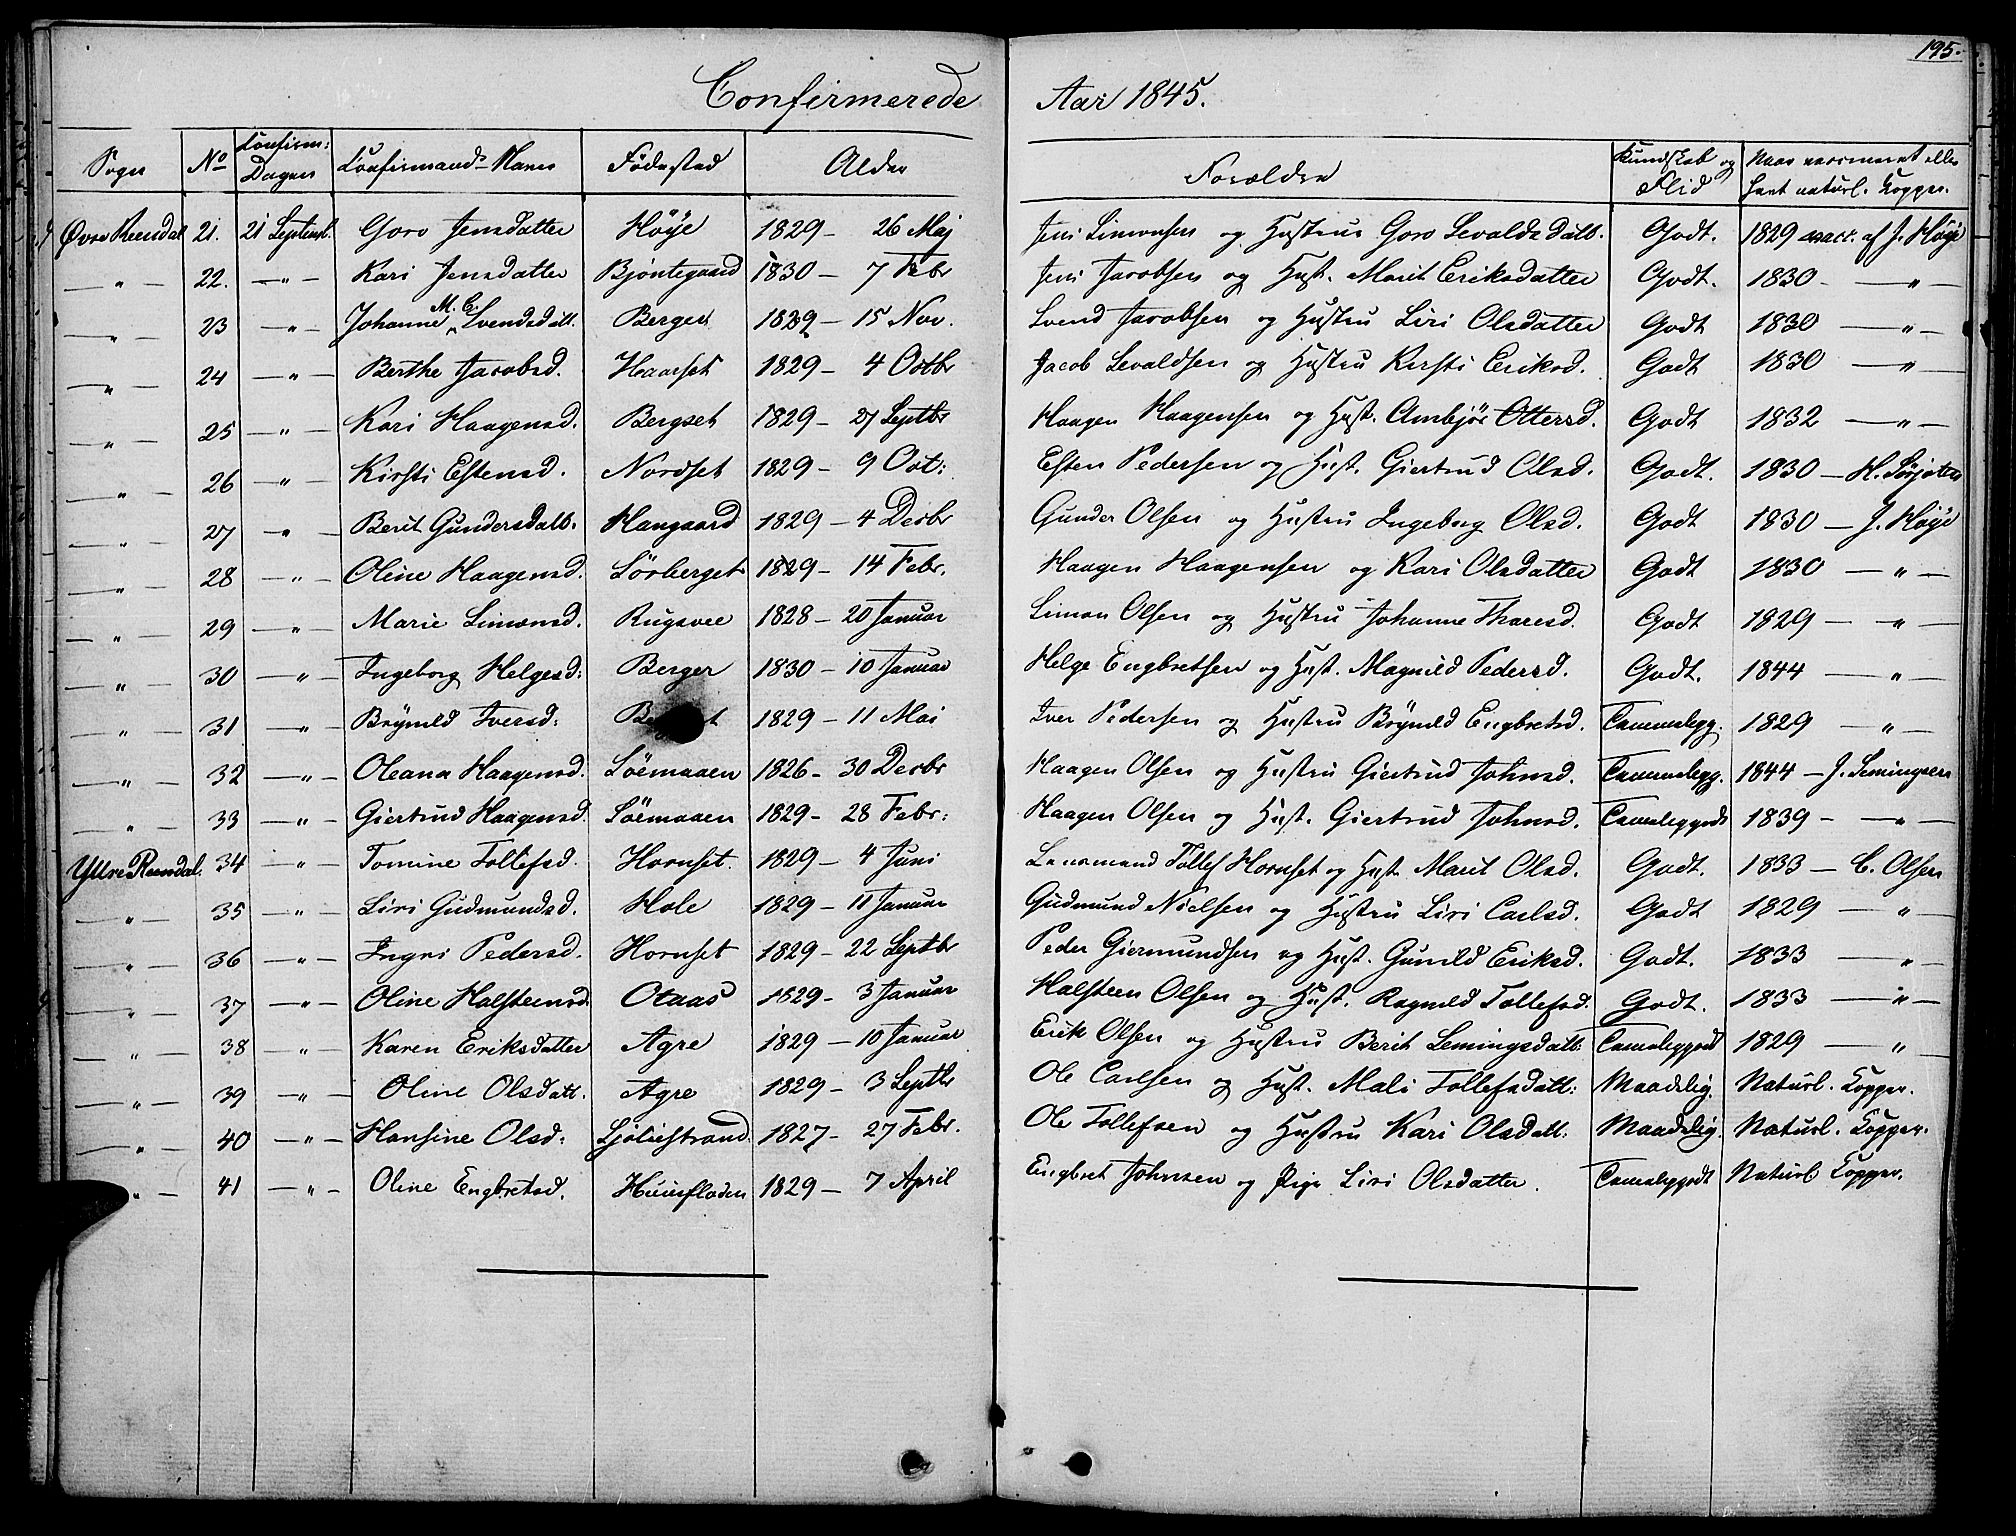 195.
Confirmerede Aar 1845.
Sogn No Confirm: Dagen Confirmands Navn Fødested Alder Forældre Kundskab og Flid Naar vaccineret eller havt naturl. Kopper.
Øvre Reendal 21. 21 Septembr. Goro Jensdatter Høÿe 1829 - 26 Maj Jens Simensen og Hustrue Goro Sevaldsdatt. Godt. 1829 vacc. af J. Høÿe
— " — 22. — " — Kari Jensdatter Bjøntegaard 1830 - 7 Febr Jens Jacobsen og Hust. Marit Eriksdatter Godt. 1830 - — " —
— " — 23 — " — Johanne M. C. Svendsdatt. Berger 1829 - 15 Nov. Svend Jacobsen og Hustru Siri Olsdatter Godt 1830 — " —
— " — 24 — " — Berthe Jacobsd. Haarset 1829 - 4 Octbr Jacob Sevaldsen og Hustru Kersti Eriksd. Godt 1830 — " —
— " — 25 — " — Kari Haagensd. Bergset 1829 - 27 Septbr Haagen Haagensen og Hust. Ambjør Ottersd. Godt 1832 — " —
— " — 26 — " — Kirsti Estensd. Nordset 1829 - 9 Oct: Esten Pedersen og Hust. Giertrud Olsd. Godt. 1830 — H.
— " — 27 " — Berit Gundersdatt. Haugaard 1829 - 4 Decbr Gunder Olsen og Hustru Ingeborg Olsd. Godt 1830 — J. Høÿe
— " — 28 — " — Oline Haagensd. Sörberget 1829 - 14 Febr. Haagen Haagensen og Kari Olsdatter Godt 1830 — " —
— " — 29 — " — Marie Simensd. Rugsvee 1828 - 20 Januar Simon Olsen og Hustru Johanne Tharesd. Godt 1829 — " —
— " — 30 — " — Ingeborg Helgesd: Berger 1830 - 10 Januar Helge Engbretsen og Hust. Magnild Pedersd. Godt. 1844 — " —
— " — 31 — " — Brÿnild Iversd: 1829 - 11 Mai Iver Pedersen og Hustru Brÿnild Engbretsd. Tammelegg. 1829 — " —
— " — 32 — " — Oleana Haagensd. Söemoaen 1826 - 30 Decbr Haagen Olsen og Hustru Giertrud Johnsd. Tammelegg. 1844 — J. Semingsen
— " — 33 — " — Giertrud Haagensd. Söemoaen 1829 - 28 Febr: Haagen Olsen og Hust. Giertrud Johnsd. Tameleggodt 1839 - — " —
Yttre Reendal. 34 — " — Tomine Tollefsd. Hornset. 1829 - 4 Juni Lensmand Tollef Hornset og Hust. Marit Olsd. Godt. 1833 — C. Olsen
— " — 35 — " — Siri Gudmundsd. Hole 1829 - 11 Januar Gudmund Nielsen og Hustru Siri Carlsd. Godt 1829 — " —
— " — 36 — " — Ingri Pedersd. Hornset 1829 - 22 Septbr Peder Giermundsen og Hust. Gunild Eriksd. Godt. 1833 — " —
— " — 37 — " — Oline Halsteensd. Otaas 1829 - 3 Januar Halsteen Olsen og Hust. Ragnild Tollefsd. Godt. 1833 — " —
— " — 38 — " — Karen Eriksdatter Agre 1829 - 10 Januar Erik Olsen og Hustru Berit Semingsdatt: Tameleggodt 1829 — " —
— " — 39 — " — Oline Olsdatt. Agre 1829 - 3 Septbr Ole Carlsen og Hust. Mali Tollefsdatt: Maadelig. Naturl. Kopper.
— " — 40 — " — Hansine Olsd: Sjøliestrand. 1827 - 27 Febr. Ole Tollefsen og Hustru Kari Olsdatt: Maadelig. Naturl. Kopper.
" — 41 — " — Oline Engbretsd. 1829 - 7 April Engbret Johnsen og Pige Siri Olsdatter. Tameleggodt Naturl Kopper.